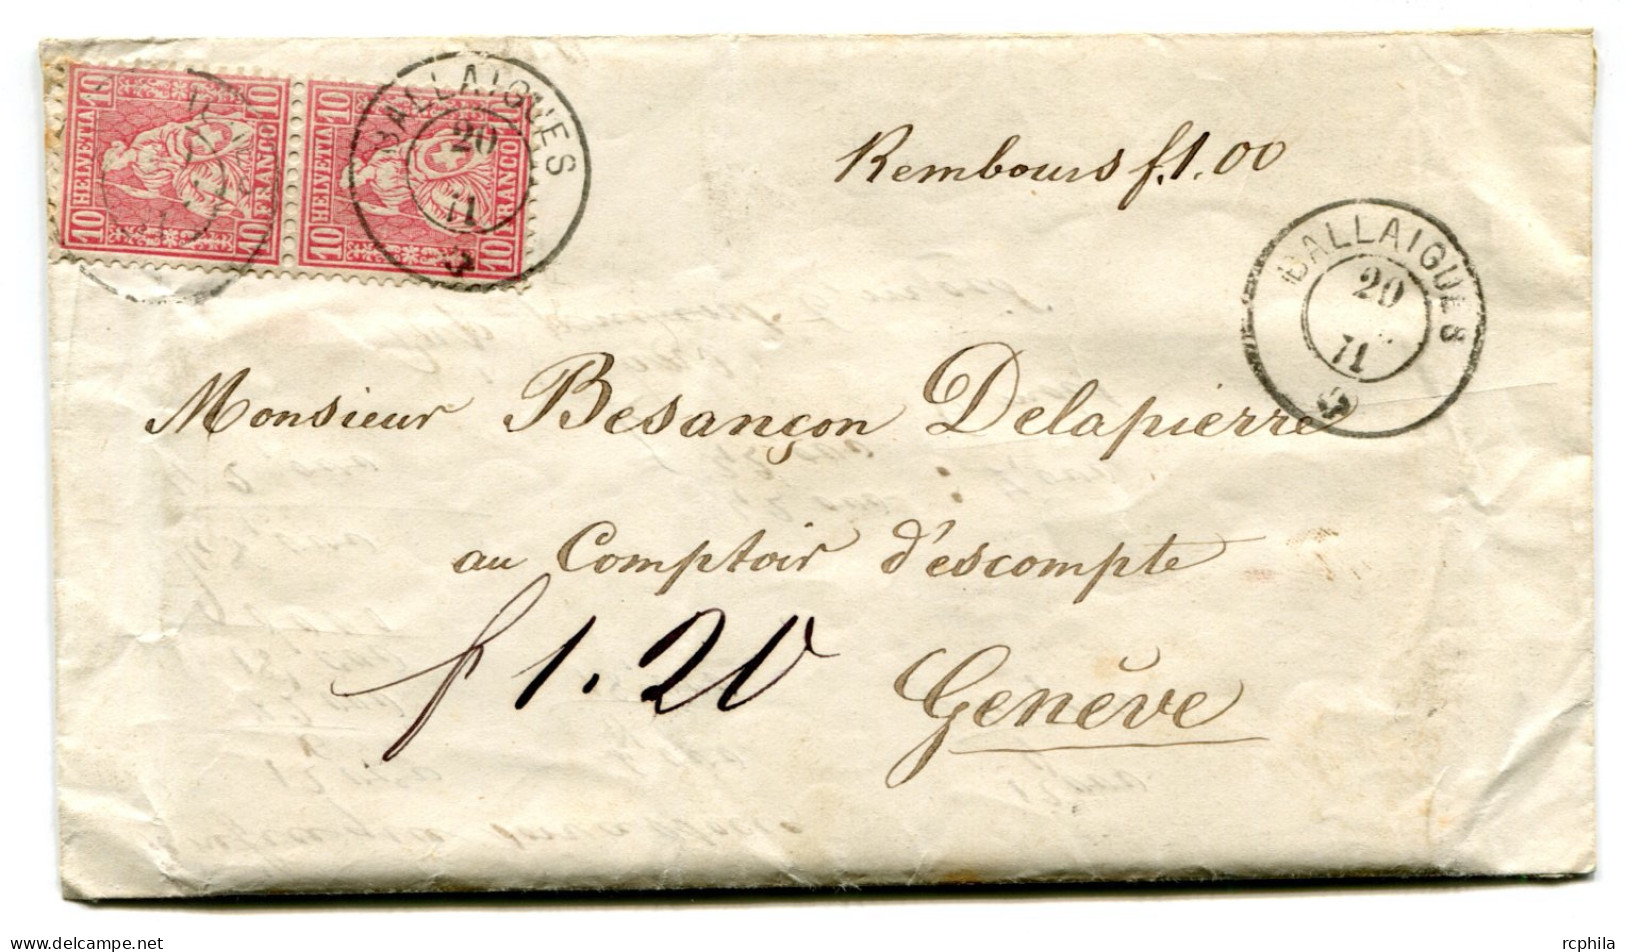 10 HELVETIA 10
10 FRANCO 10
10 HELVETIA 10
10 FRANCO 10
BALLAIGUES
20
71
Rembours f. 1.00
BALLAIGUES
20
71
Monsieur Besançon Delapierre
au Comptoir d'escompte
f 1.20
Genève
delcampe.net
rcphila